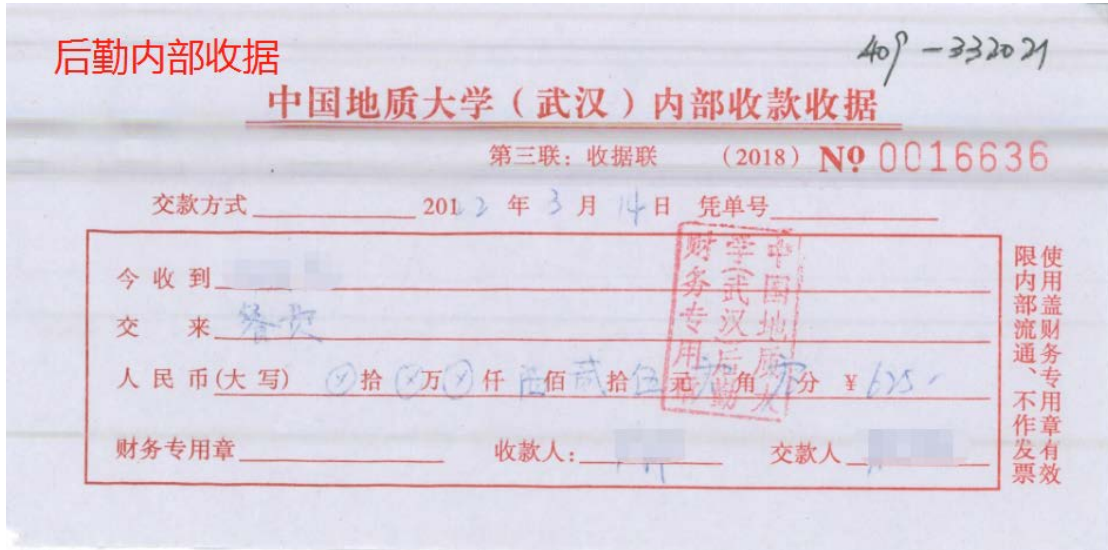 后勤内部收据
409-332021
中国地质大学（武汉）内部收款收据
第三联：收据联 （2018） № 0016636
交款方式 2012 2 年 3 月 14 日 凭单号
今收到
交来 餐费
人民币(大写) ⊗拾⊗万⊗仟陆佰贰拾伍元零角零分 ¥625.-
财务专用章 收款人： 交款人
中国地质大学(武汉)后勤财务专用章
使用盖财务专用章有效
限内部流通、不作发票